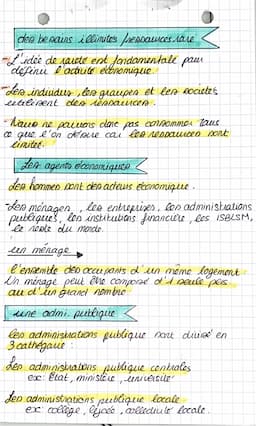 des besoins illimités / ressources rare
- L'idée de rareté est fondamentale pour
définir l'activité économique.
- Les individus, les groupes et les sociétés
utilisent des ressources.
- Nous ne pouvons donc pas consommer tous
ce que l'on désire car les ressources sont
limités.
Les agents économiques
Les hommes sont des acteurs économique.
Les ménages, les entreprises, les administrations
publiques, les institutions financière, les ISBLSM,
le reste du monde.
un ménage
L'ensemble des occupants d'un même logement
Un ménage peut être composé d'1 seule pers
ou d'un grand nombre
une admi. publique
Les administrations publique sont divisé en
3 cathégorie :
Les administrations publique centrales
ex: État, ministère, université
Les administrations publique locale
ex: collège, lycée, collectivité locale.